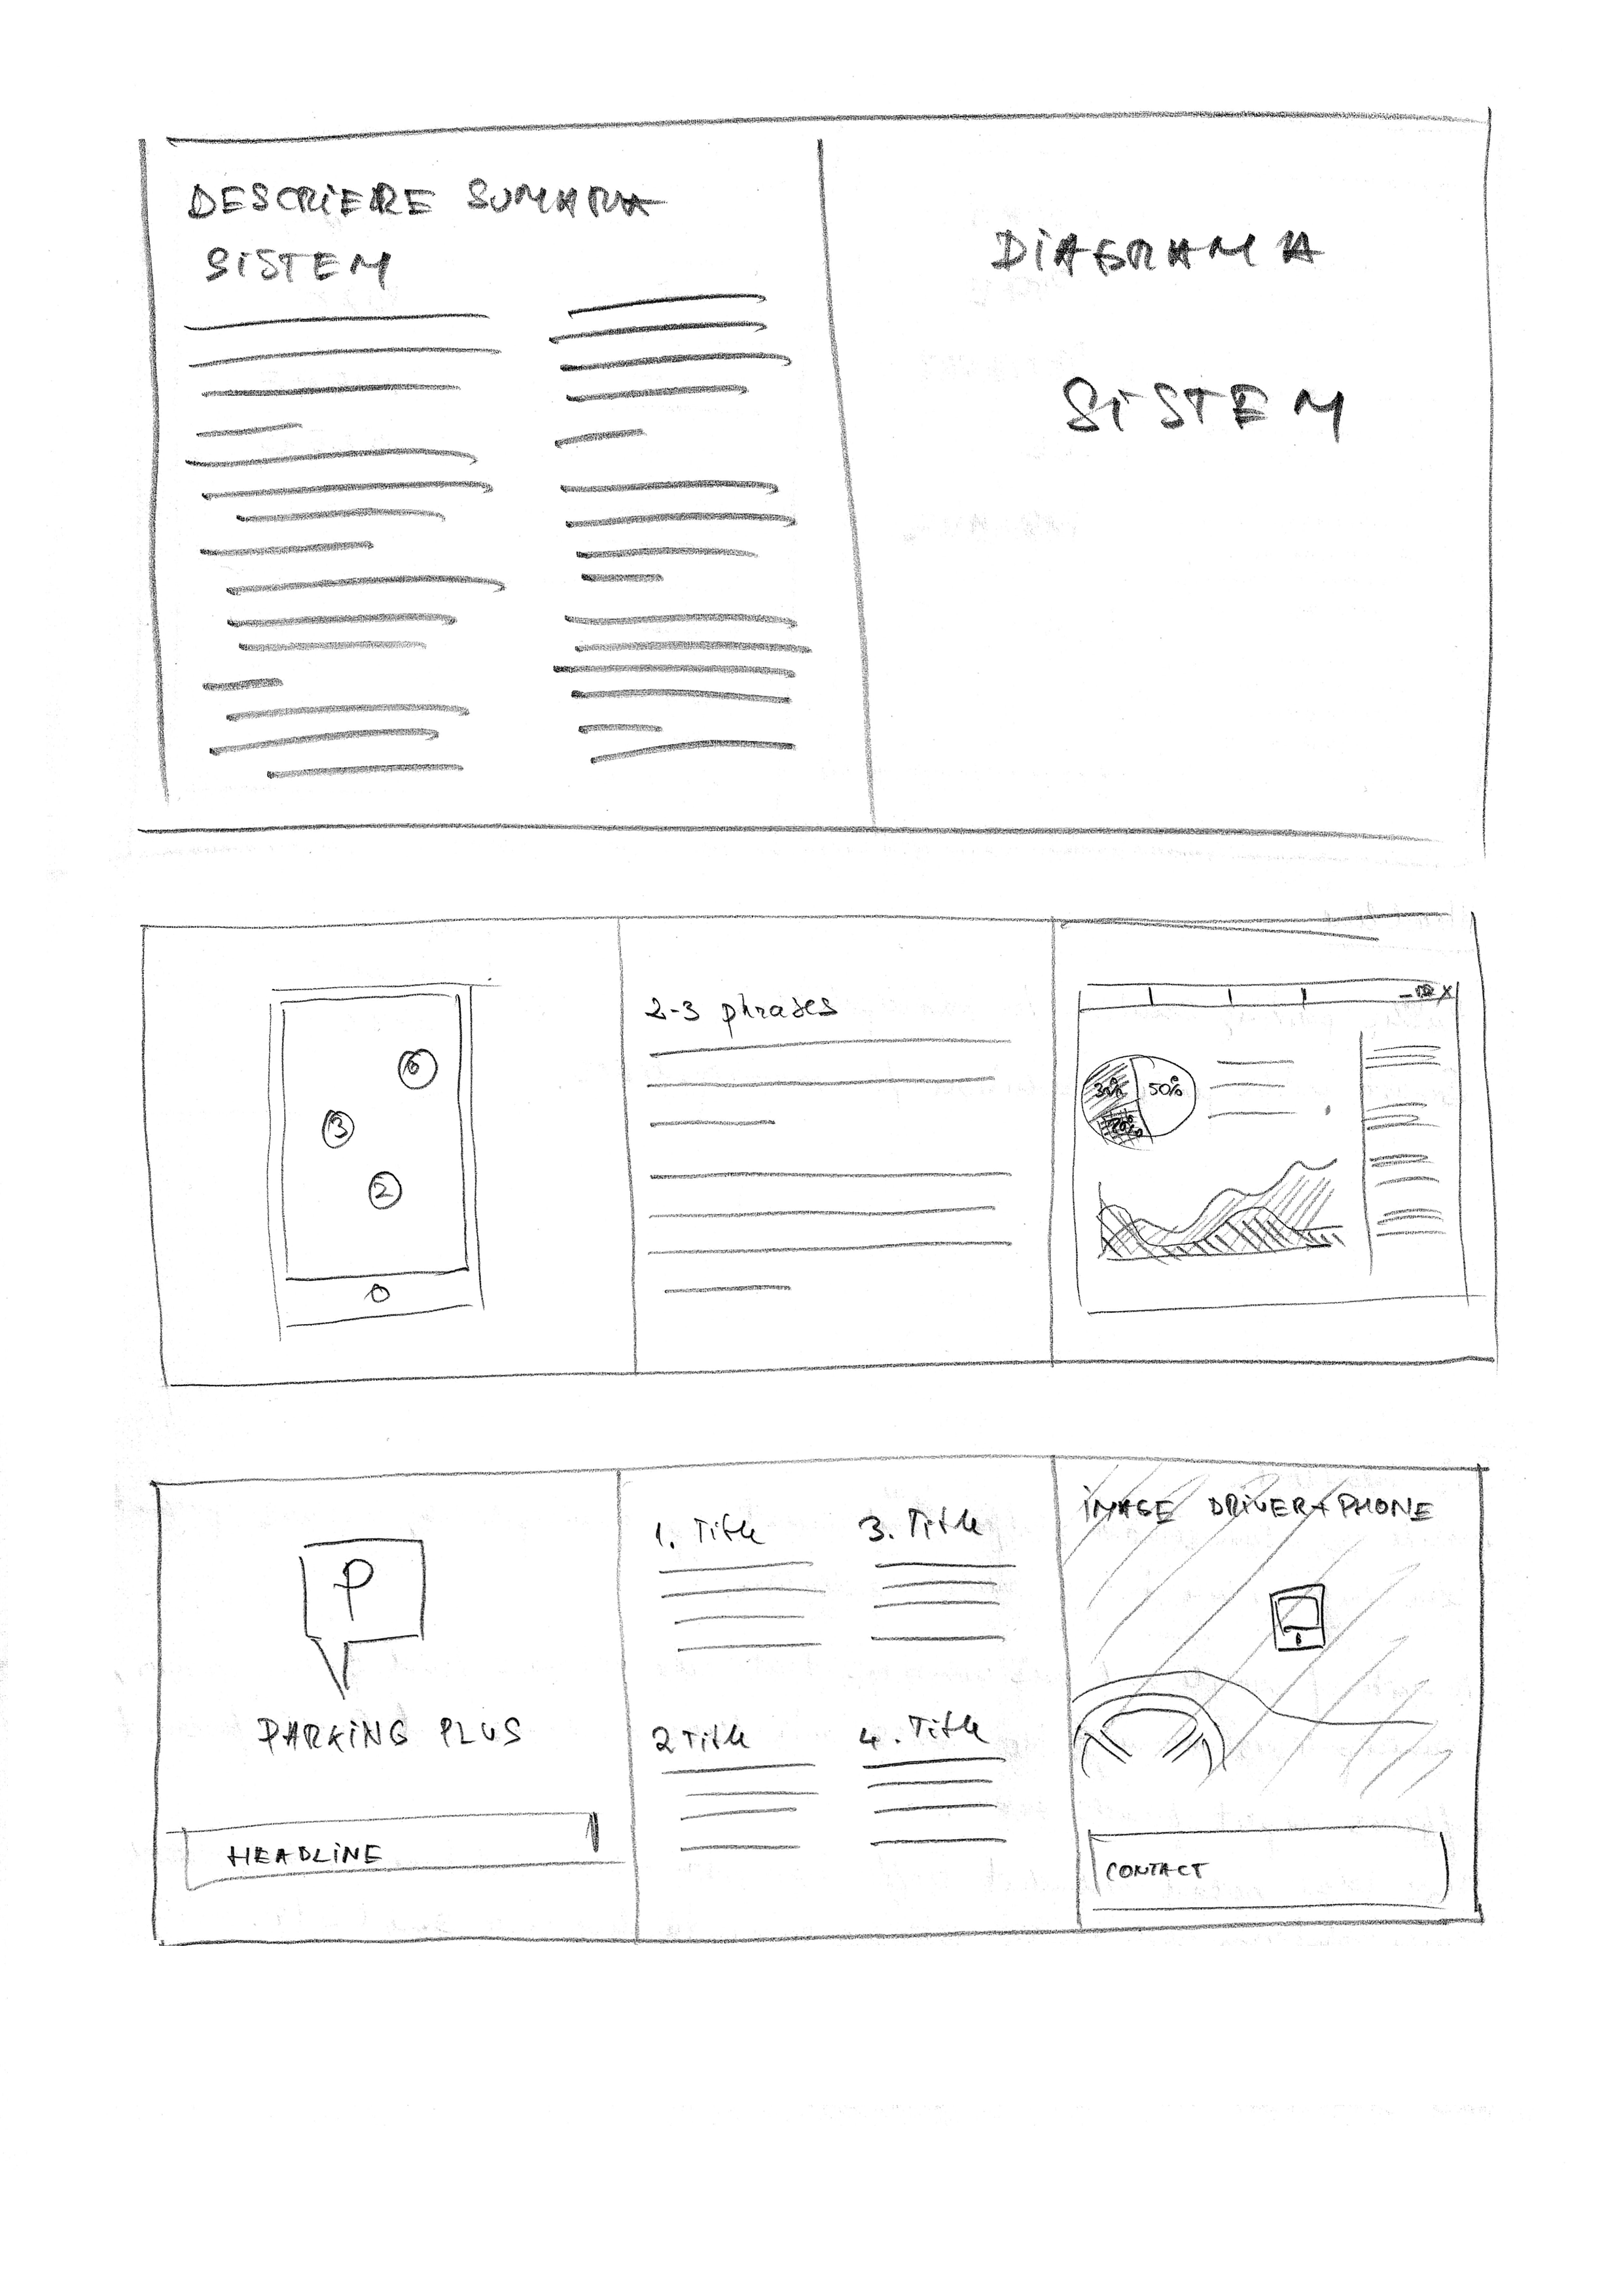 DESCRIERE SUMARA
SISTEM
DIAGRAMA
SISTEM
6
3
2
2-3 phrases
30%
50%
20%
P
PARKING PLUS
HEADLINE
1. Title
2 Title
3. Title
4. Title
IMAGE DRIVER + PHONE
CONTACT